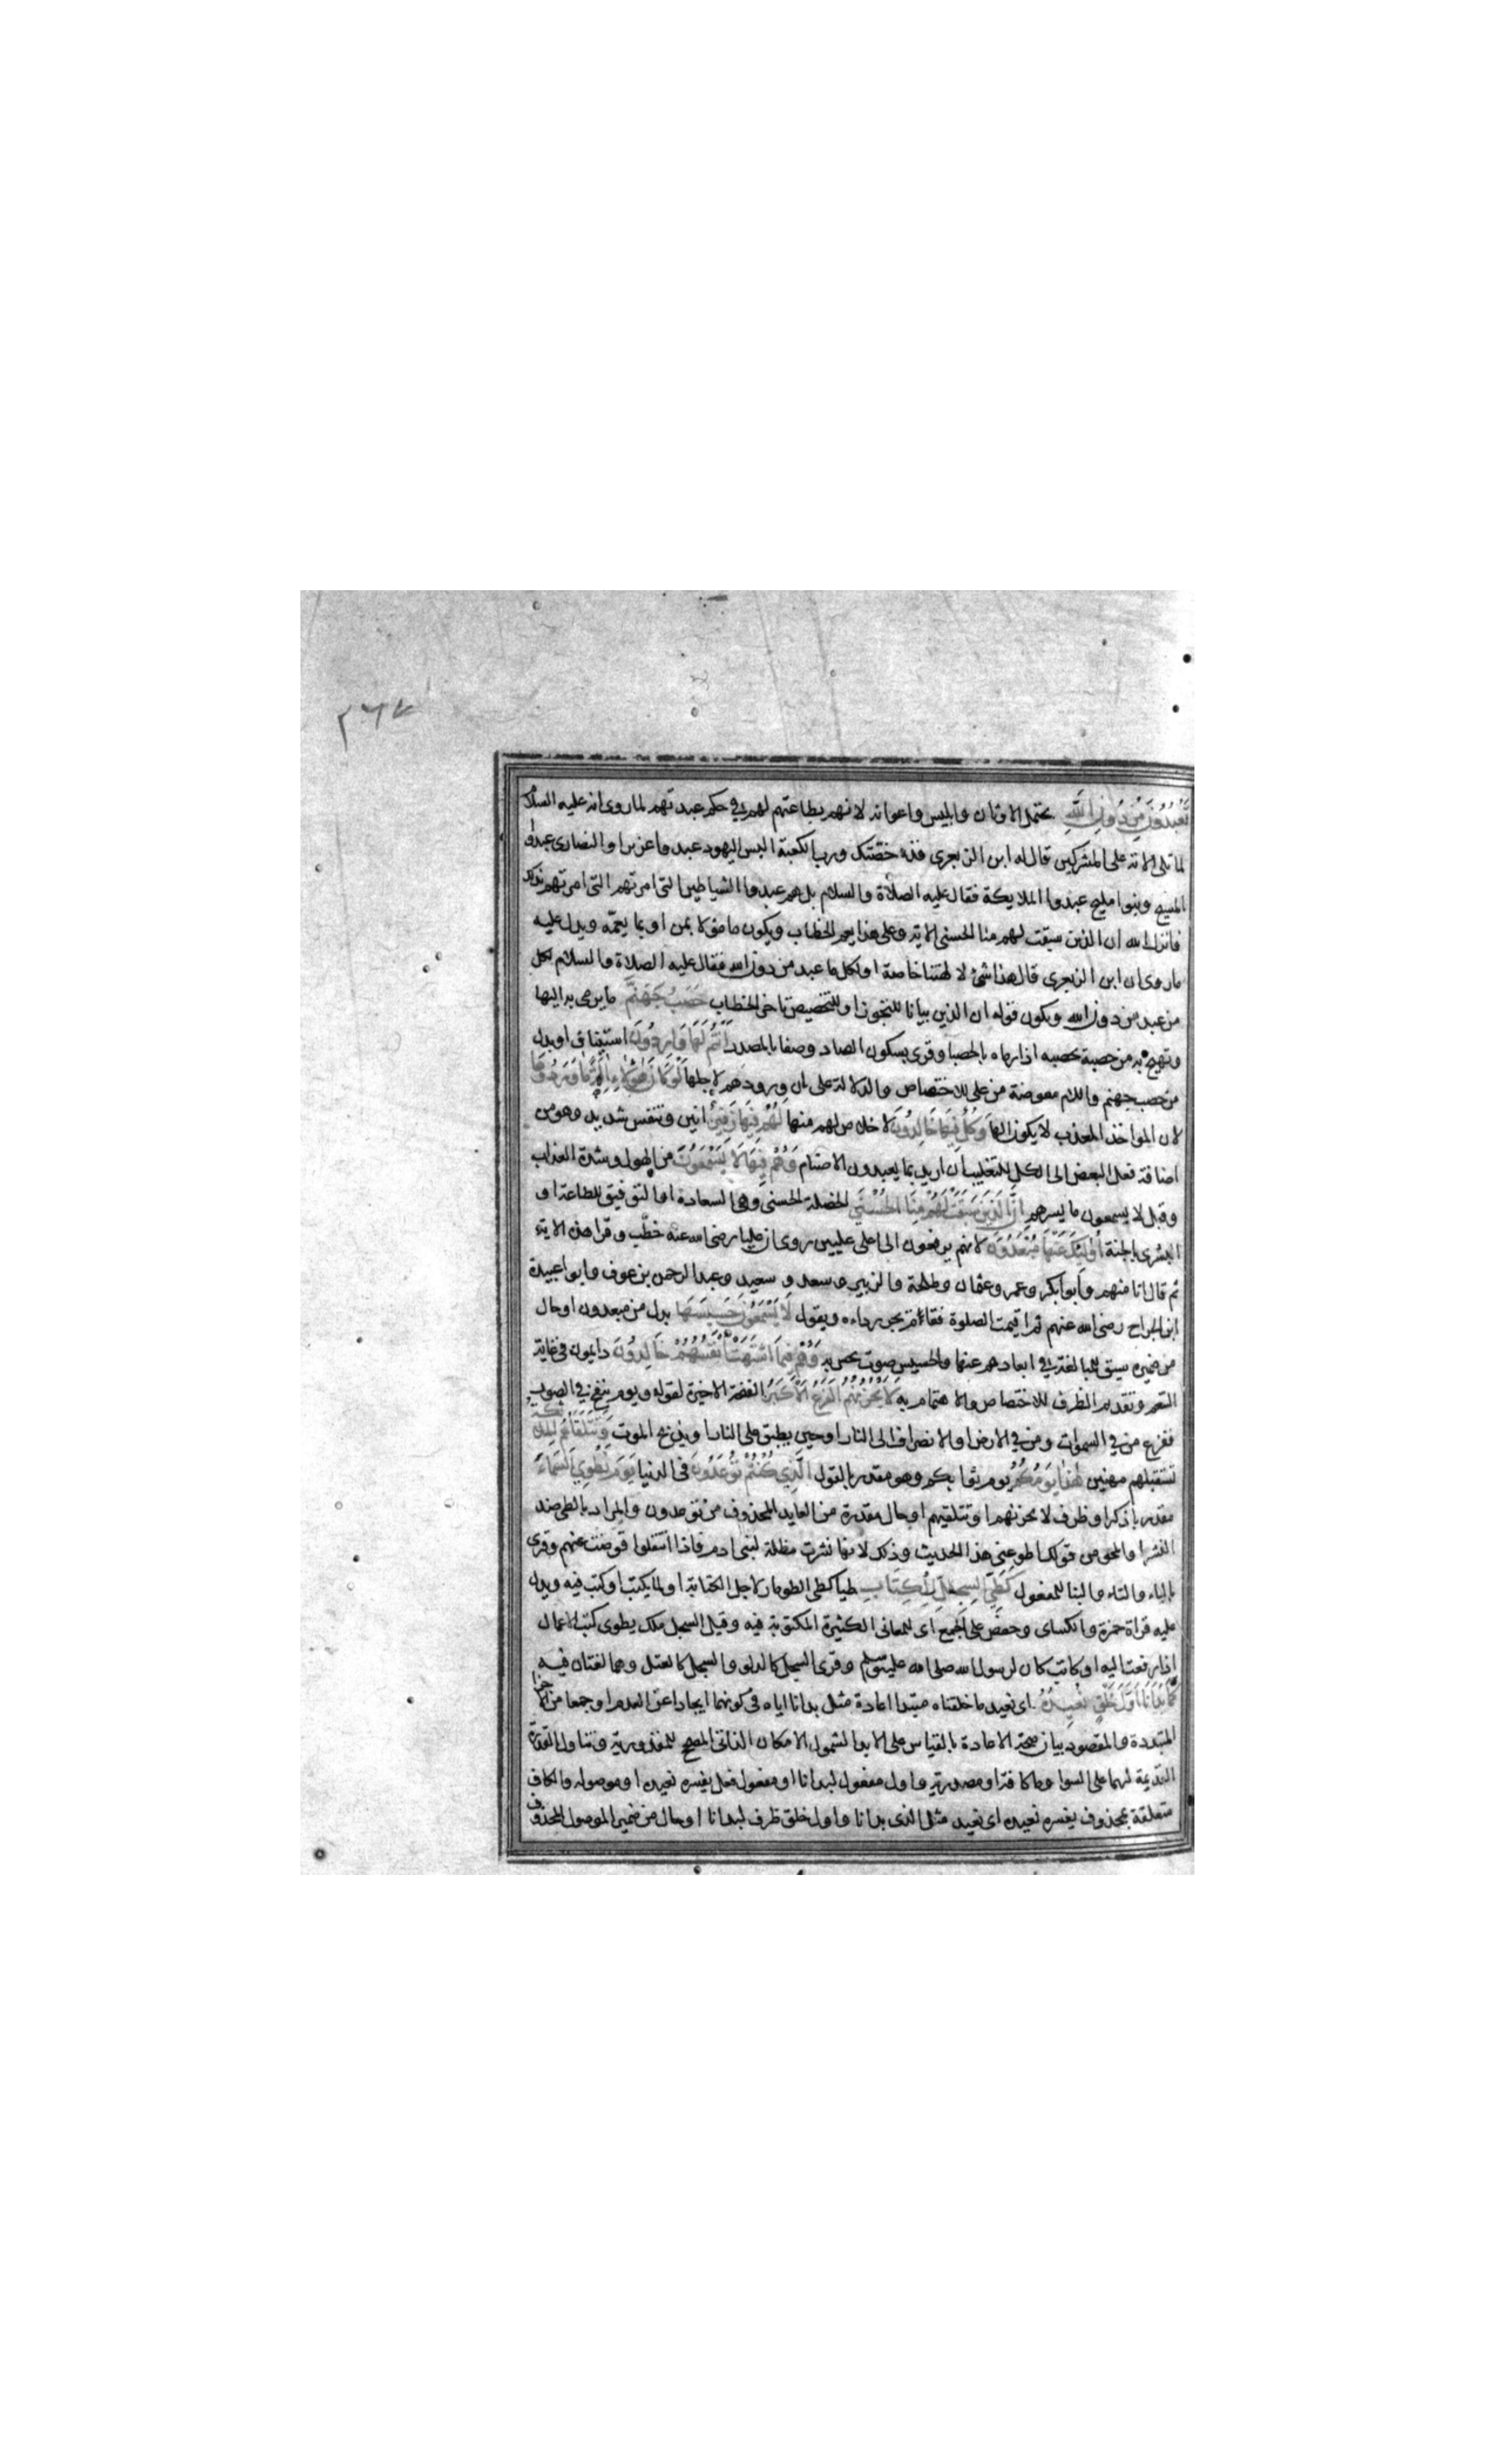 ٣٦٧
تَعْبُدُونَ مِنْ دُونِ اللَّهِ يحتمل الاوثان وابليس واعوانه لانهم بطاعتهم لهم في حكم عبدتهم لما روى انه عليه السلام
لما تلى الاية على المشركين قال له ابن الزبعرى قد خصمتك ورب الكعبة اليس اليهود عبدوا عزيرا والنصارى عبدوا
المسيح وبنوا مليح عبدوا الملايكة فقال عليه الصلاة والسلام بل هم عبدوا الشياطين التى امرتهم التى امرتهم بذلك
فانزل الله ان الذين سبقت لهم منا الحسنى الاية وعلى هذا يعم الخطاب ويكون ما مؤلا بمن او بما يعمّه ويدل عليه
ما روى ان ابن الزبعرى قال هذا شئ لالهتنا خاصة او لكل ما عبد من دون الله فقال عليه الصلاة والسلام لكل
من عبد من دون الله ويكون قوله ان الذين بيانا للتجوز او للتخصيص تاخر الخطاب حَصَبُ جَهَنَّمَ ما يرمى به اليها
وتهيج به من حصبه يحصبه اذا رماه بالحصبا وقرى بسكون الصاد وصفا بالمصدر اَنْتُمْ لَهَا وَارِدُونَ استيناف او بدل
من حصب جهنم واللام معوضة من على للاختصاص والدلالة على ان ورودهم لاجلها لَوْ كَانَ هٰؤُلَاءِ اٰلِهَةً مَا وَرَدُوهَا
لان المواخذ المعذب لا يكون الها وَكُلٌّ فِيهَا خَالِدُونَ لا خلاص لهم منها لَهُمْ فِيهَا زَفِيرٌ انين وتنفس شديد وهو من
اضافة فعل البعض الى الكل للتغليب ان اريد بما يعبدون الاصنام وَهُمْ فِيهَا لَا يَسْمَعُونَ من الهول وشدة العذاب
وقيل لا يسمعون ما يسرهم اِنَّ الَّذِينَ سَبَقَتْ لَهُمْ مِنَّا الْحُسْنَى الخصلة الحسنى وهى السعادة او التوفيق للطاعة او
البشرى بالجنة اُولٰئِكَ عَنْهَا مُبْعَدُونَ لانهم يرفعون الى اعلى عليين روى ان عليا رضى الله عنه خطب وقرا هذه الاية
ثم قال انا منهم وابو بكر وعمر وعثمان وطلحة والزبير وسعد وسعيد وعبد الرحمن بن عوف وابو عبيدة
ابن الجراح رضى الله عنهم ثم اقيمت الصلوة فقام يجر رداءه ويقول لَا يَسْمَعُونَ حَسِيسَهَا بدل من مبعدون او حال
من ضميره سيق للمبالغة في ابعادهم عنها والحسيس صوت يحس به وَهُمْ فِيمَا اشْتَهَتْ اَنْفُسُهُمْ خَالِدُونَ دايمون في غاية
التنعم وتقديم الظرف للاختصاص والاهتمام به لَا يَحْزُنُهُمُ الْفَزَعُ الْاَكْبَرُ النفخة الاخيرة لقوله ويوم ينفخ في الصور
ففزع من في السموات ومن في الارض او الانصراف الى النار او حين يطبق على النار او يذبح الموت وَتَتَلَقَّاهُمُ الْمَلٰئِكَةُ
تستقبلهم مهنين هٰذَا يَوْمُكُمُ يوم ثوابكم وهو مقدر بالقول الَّذِي كُنْتُمْ تُوعَدُونَ في الدنيا يَوْمَ نَطْوِي السَّمَاءَ
مقدر باذكر او ظرف لا يحزنهم او تتلقيهم او حال مقدرة من العايد المحذوف من توعدون والمراد بالطى ضد
النشر او المحو من قولك اطو عنى هذا الحديث وذلك لانها نشرت مظلة لبنى ادم فاذا انتقلوا قوضت عنهم وقرى
بالياء والتاء والبنا للمفعول كَطَيِّ السِّجِلِّ لِلْكِتَابِ طيا كطى الطومار لاجل الكتابة او لما يكتب او كتب فيه ويدل
عليه قراة حمزة والكساى وحفص على الجمع اى للمعانى الكثيرة المكتوبة فيه وقيل السجل ملك يطوى كتب الاعمال
اذا رفعت اليه او كاتب كان لرسول الله صلى الله عليه وسلم وقرى السجل كالدلو والسجل كالعتل وهما لغتان فيه
كَمَا بَدَاْنَا اَوَّلَ خَلْقٍ نُعِيدُهُ اى نعيد ما خلقناه مبتدا اعادة مثل بدانا اياه في كونهما ايجادا عن العدم او جمعا من الاجزا
المتبددة والمقصود بيان صحة الاعادة بالقياس على الابدا لشمول الامكان الذاتى المصحح للمقدورية وتناول القدرة
القديمة لهما على السوا وما كافة او مصدرية واول مفعول لبدانا او مفعول فعل يفسره نعيده او موصولة والكاف
متعلقة بمحذوف يفسره نعيده اى نعيد مثل الذى بدانا واول خلق ظرف لبدانا او حال من ضمير الموصول المحذوف